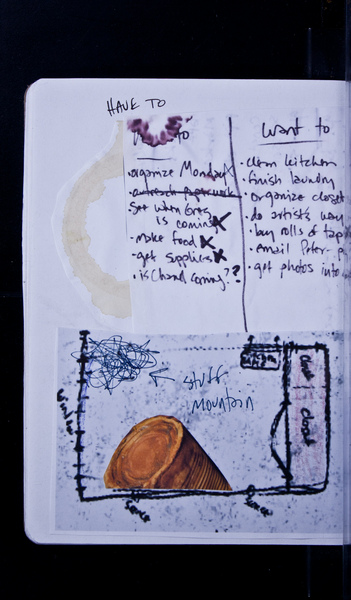 HAVE TO
to
want to
· organize Monday X
· outreach paperwork
See when Greg
is coming X
· make food X
· get supplies X
· is Chand coming??
· clean kitchen
· finish laundry
· organize closet
· do artist's way
· buy rolls of tap
· email Peter - p
· get photos into
stuff
mountain
window
closet